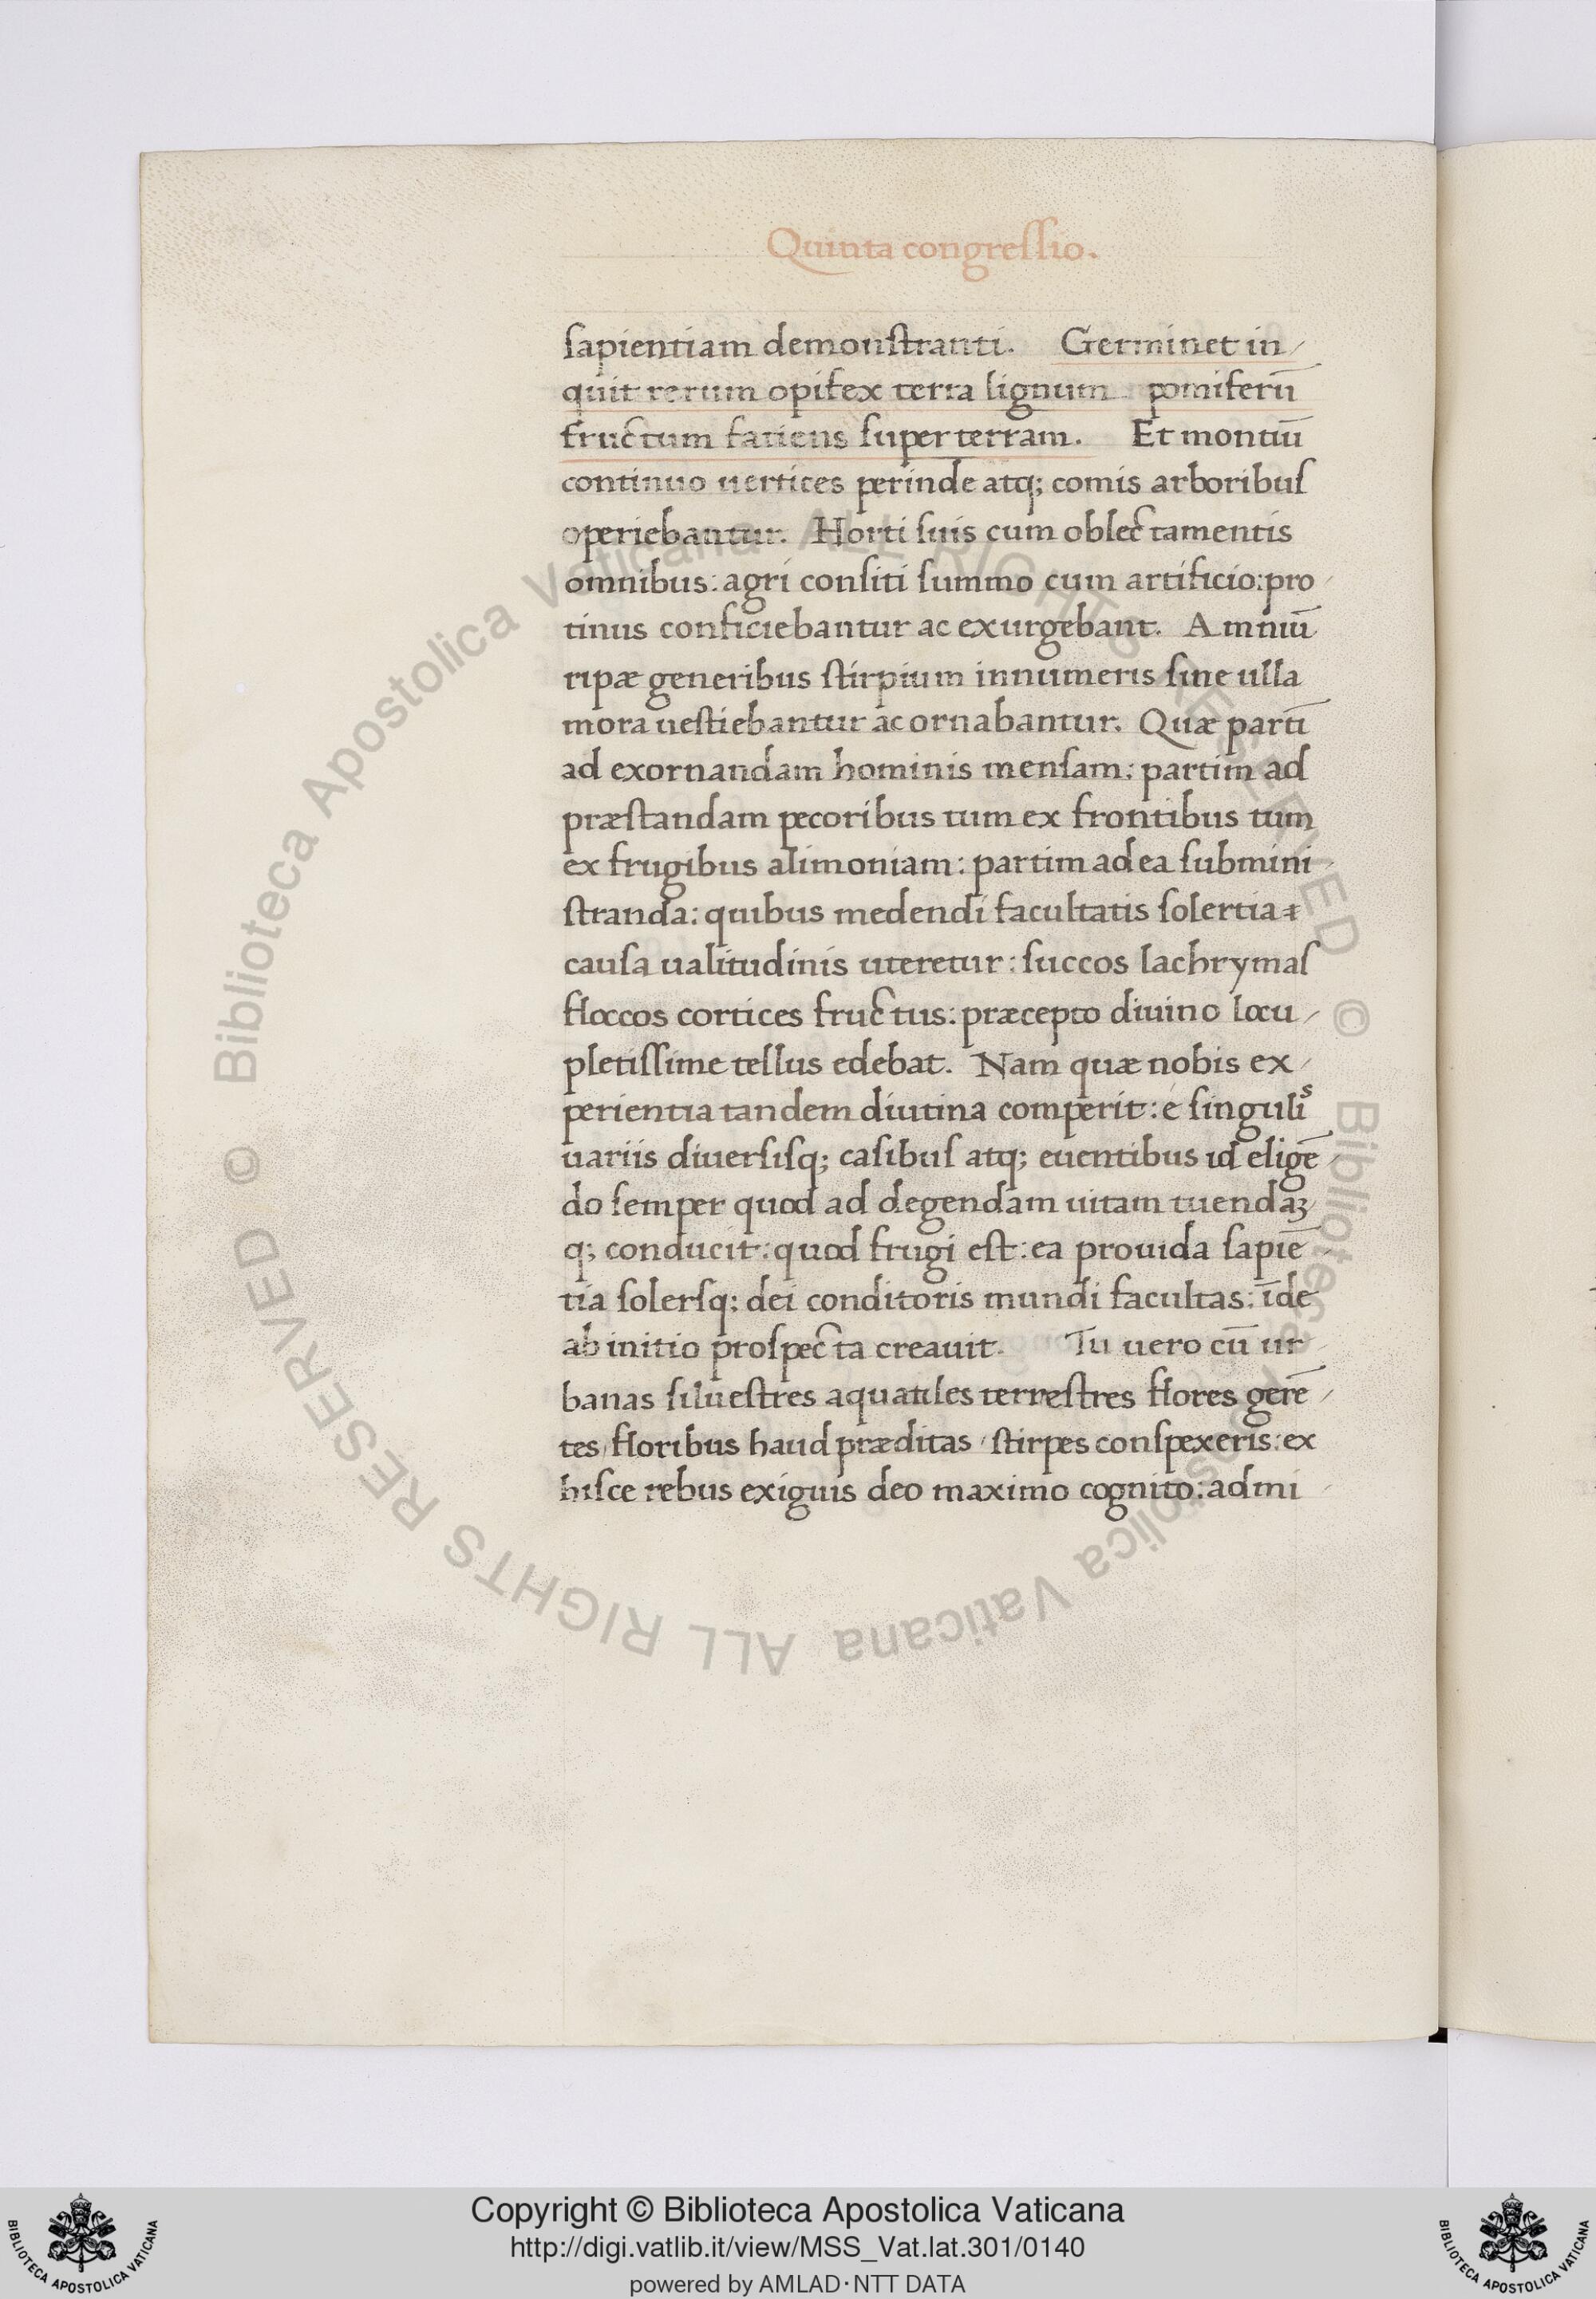 Quinta congreſſio.
ſapientiam demonſtranti. Germinet in-
quit rerum opifex terra lignum pomiferū
fructum fatiens ſuper terram. Et montiū
continuo uertices perinde atq; comis arboribuſ
operiebantur. Horti ſuis cum oblectamentis
omnibus: agri conſiti ſummo cum artificio: pro-
tinus conficiebantur ac exurgebant. Amniū
ripæ generibus ſtirpium innumeris ſine ulla
mora ueſtiebantur ac ornabantur. Quæ partī
ad exornandam hominis menſam: partim ad
præſtandam pecoribus tum ex frontibus tum
ex frugibus alimoniam: partim ad ea ſubmini-
ſtranda: quibus medendi facultatis ſolertia
cauſa ualitudinis uteretur: ſuccos lachrymaſ
floccos cortices fructus: præcepto diuino locu-
pletiſſime tellus edebat. Nam quæ nobis ex-
perientia tandem diutina comperit: e ſinguliˢ
uariis diuerſiſq; caſibuſ atq; euentibus id eligē-
do ſemper quod ad degendam uitam tuendaꝫ
q; conducit: quod frugi eſt: ea prouida ſapiē-
tia ſolerſq; dei conditoris mundi facultas: īde
ab initio proſpecta creauit. Tu uero cū ur-
banas ſilueſtres aquatiles terreſtres flores gerē-
tes, floribus haud præditas, ſtirpes conſpexeris: ex
hiſce rebus exiguis deo maximo cognito: admi-
Biblioteca Apostolica Vaticana ALL RIGHTS RESERVED ©
Biblioteca Apostolica Vaticana ALL RIGHTS RESERVED ©
Copyright © Biblioteca Apostolica Vaticana
http://digi.vatlib.it/view/MSS_Vat.lat.301/0140
powered by AMLAD·NTT DATA
BIBLIOTECA APOSTOLICA VATICANA
BIBLIOTECA APOSTOLICA VATICANA